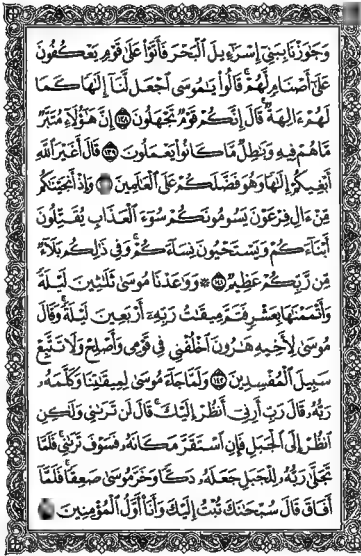 وَجَٰوَزْنَا بِبَنِىٓ إِسْرَٰٓءِيلَ ٱلْبَحْرَ فَأَتَوْا۟ عَلَىٰ قَوْمٍ يَعْكُفُونَ
عَلَىٰٓ أَصْنَامٍ لَّهُمْ ۚ قَالُوا۟ يَٰمُوسَى ٱجْعَل لَّنَآ إِلَٰهًا كَمَا
لَهُمْ ءَالِهَةٌ ۚ قَالَ إِنَّكُمْ قَوْمٌ تَجْهَلُونَ ١٣٨ إِنَّ هَٰٓؤُلَآءِ مُتَبَّرٌ
مَّا هُمْ فِيهِ وَبَٰطِلٌ مَّا كَانُوا۟ يَعْمَلُونَ ١٣٩ قَالَ أَغَيْرَ ٱللَّهِ
أَبْغِيكُمْ إِلَٰهًا وَهُوَ فَضَّلَكُمْ عَلَى ٱلْعَٰلَمِينَ وَإِذْ أَنجَيْنَٰكُم
مِّنْ ءَالِ فِرْعَوْنَ يَسُومُونَكُمْ سُوٓءَ ٱلْعَذَابِ ۖ يُقَتِّلُونَ
أَبْنَآءَكُمْ وَيَسْتَحْيُونَ نِسَآءَكُمْ ۚ وَفِى ذَٰلِكُم بَلَآءٌ
مِّن رَّبِّكُمْ عَظِيمٌ ١٤١ ۞ وَوَٰعَدْنَا مُوسَىٰ ثَلَٰثِينَ لَيْلَةً
وَأَتْمَمْنَٰهَا بِعَشْرٍ فَتَمَّ مِيقَٰتُ رَبِّهِۦٓ أَرْبَعِينَ لَيْلَةً ۚ وَقَالَ
مُوسَىٰ لِأَخِيهِ هَٰرُونَ ٱخْلُفْنِى فِى قَوْمِى وَأَصْلِحْ وَلَا تَتَّبِعْ
سَبِيلَ ٱلْمُفْسِدِينَ ١٤٢ وَلَمَّا جَآءَ مُوسَىٰ لِمِيقَٰتِنَا وَكَلَّمَهُۥ
رَبُّهُۥ قَالَ رَبِّ أَرِنِىٓ أَنظُرْ إِلَيْكَ ۚ قَالَ لَن تَرَىٰنِى وَلَٰكِنِ
ٱنظُرْ إِلَى ٱلْجَبَلِ فَإِنِ ٱسْتَقَرَّ مَكَانَهُۥ فَسَوْفَ تَرَىٰنِى ۚ فَلَمَّا
تَجَلَّىٰ رَبُّهُۥ لِلْجَبَلِ جَعَلَهُۥ دَكًّا وَخَرَّ مُوسَىٰ صَعِقًا ۚ فَلَمَّآ
أَفَاقَ قَالَ سُبْحَٰنَكَ تُبْتُ إِلَيْكَ وَأَنَا۠ أَوَّلُ ٱلْمُؤْمِنِينَ